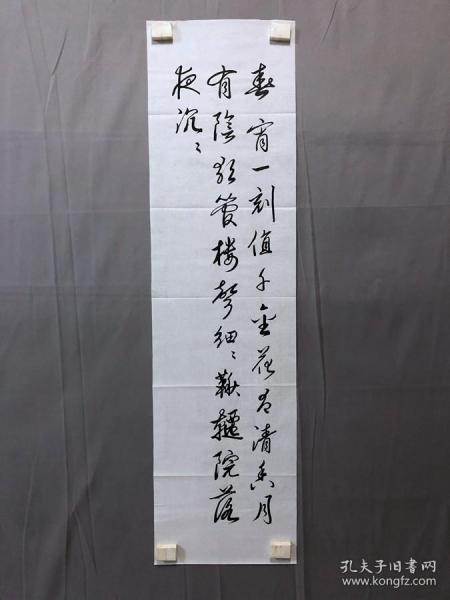 春宵一刻值千金花有清香月
有陰歌管楼聲細〻鞦韆院落
夜沉〻
孔夫子旧书网
www.kongfz.com